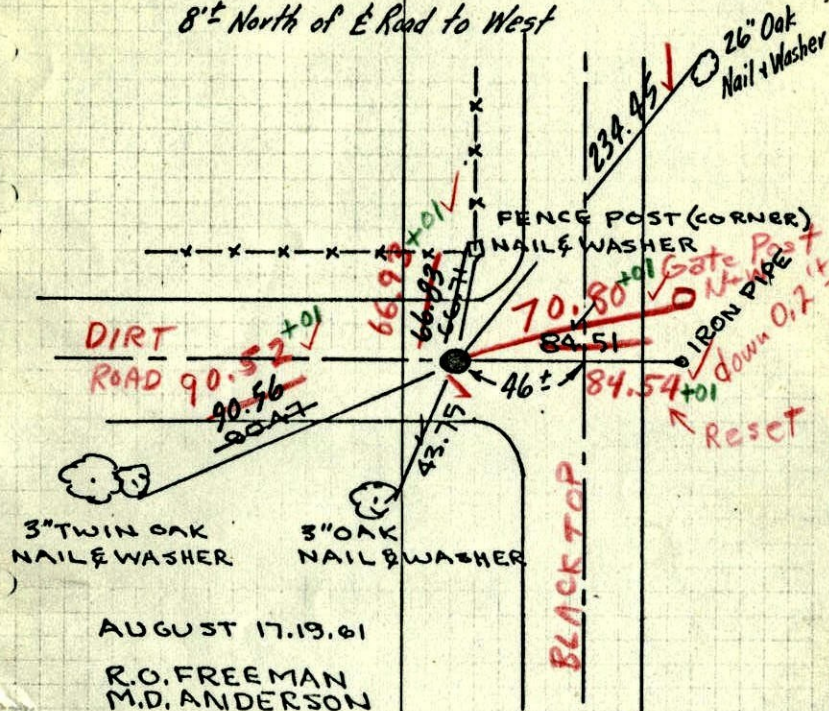 8'± North of ℄ Road to West
26" Oak
Nail & Washer
234.45
FENCE POST (CORNER)
NAIL & WASHER
+01
66.93
66.93
66.71
+01
Gate Post
70.80
84.51
IRON PIPE
down 0.2
46±
84.54 +01
Reset
DIRT
ROAD
+01
90.52
90.56
90.47
43.75
3" TWIN OAK
NAIL & WASHER
3" OAK
NAIL & WASHER
BLACKTOP
AUGUST 17.19.61
R.O. FREEMAN
M.D. ANDERSON